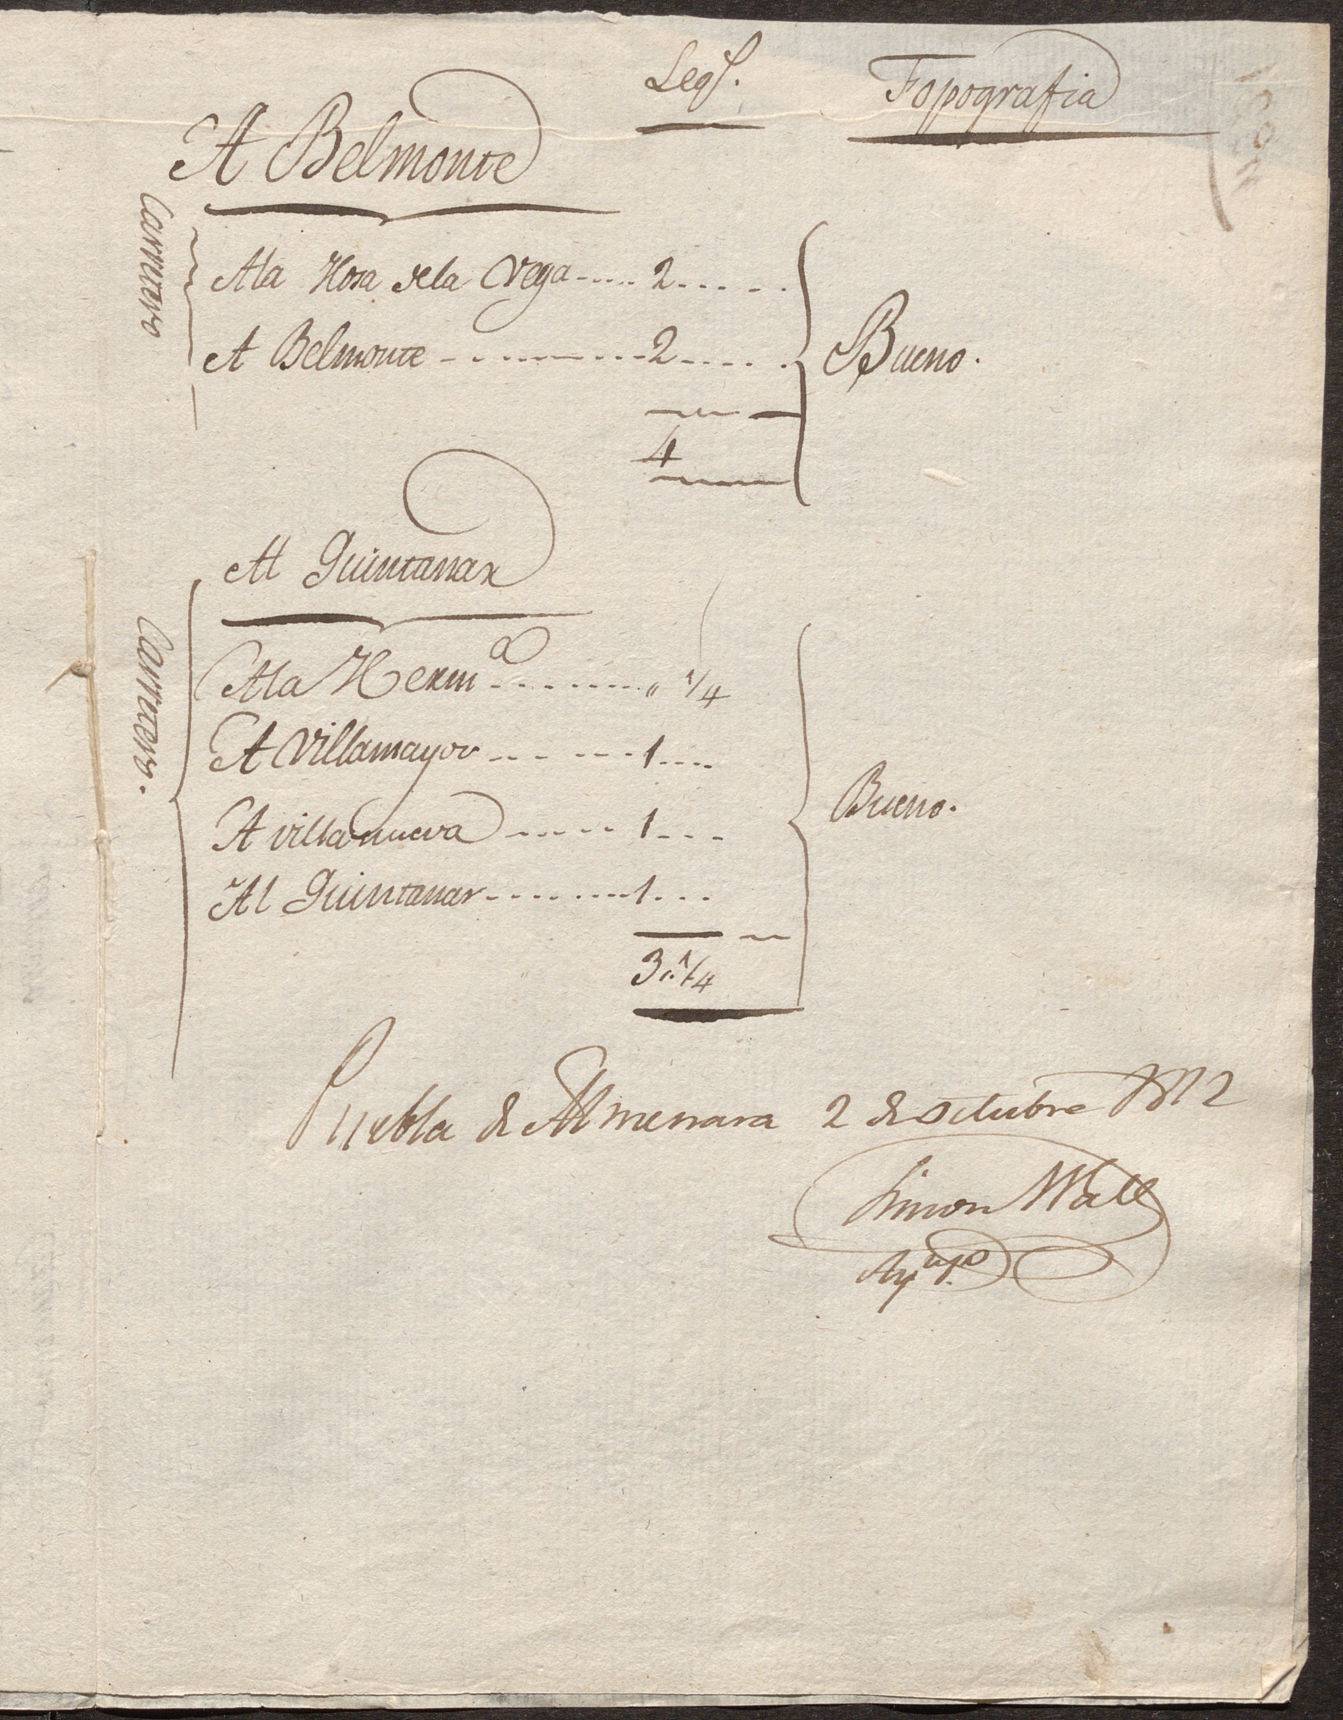 Leg.s Topografia
A Belmonte
Carretero
A la Hosa de la Vega ..... 2 .....
A Belmonte ........ 2 ..... Bueno.
4
Al Quintanar
Carretero.
A la Herm.a ........ " 1/4
A Villamayor ..... 1 ....
A villanueva ..... 1 ... Bueno.
Al Quintanar ........ 1 ...
3 " 1/4
Puebla de Almenara 2 de Octubre 1812
Simon Wall